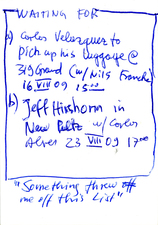 WAITING FOR
a) Carlos Velazquez to
pick up his luggage @
319 Grand (w/ Nils Franck)
16 VIII 09 15:00
b) Jeff Hirshorn in
New Paltz w/ Carlos
Alver 23 VIII 09 17:00
"Something threw off
me off this list"